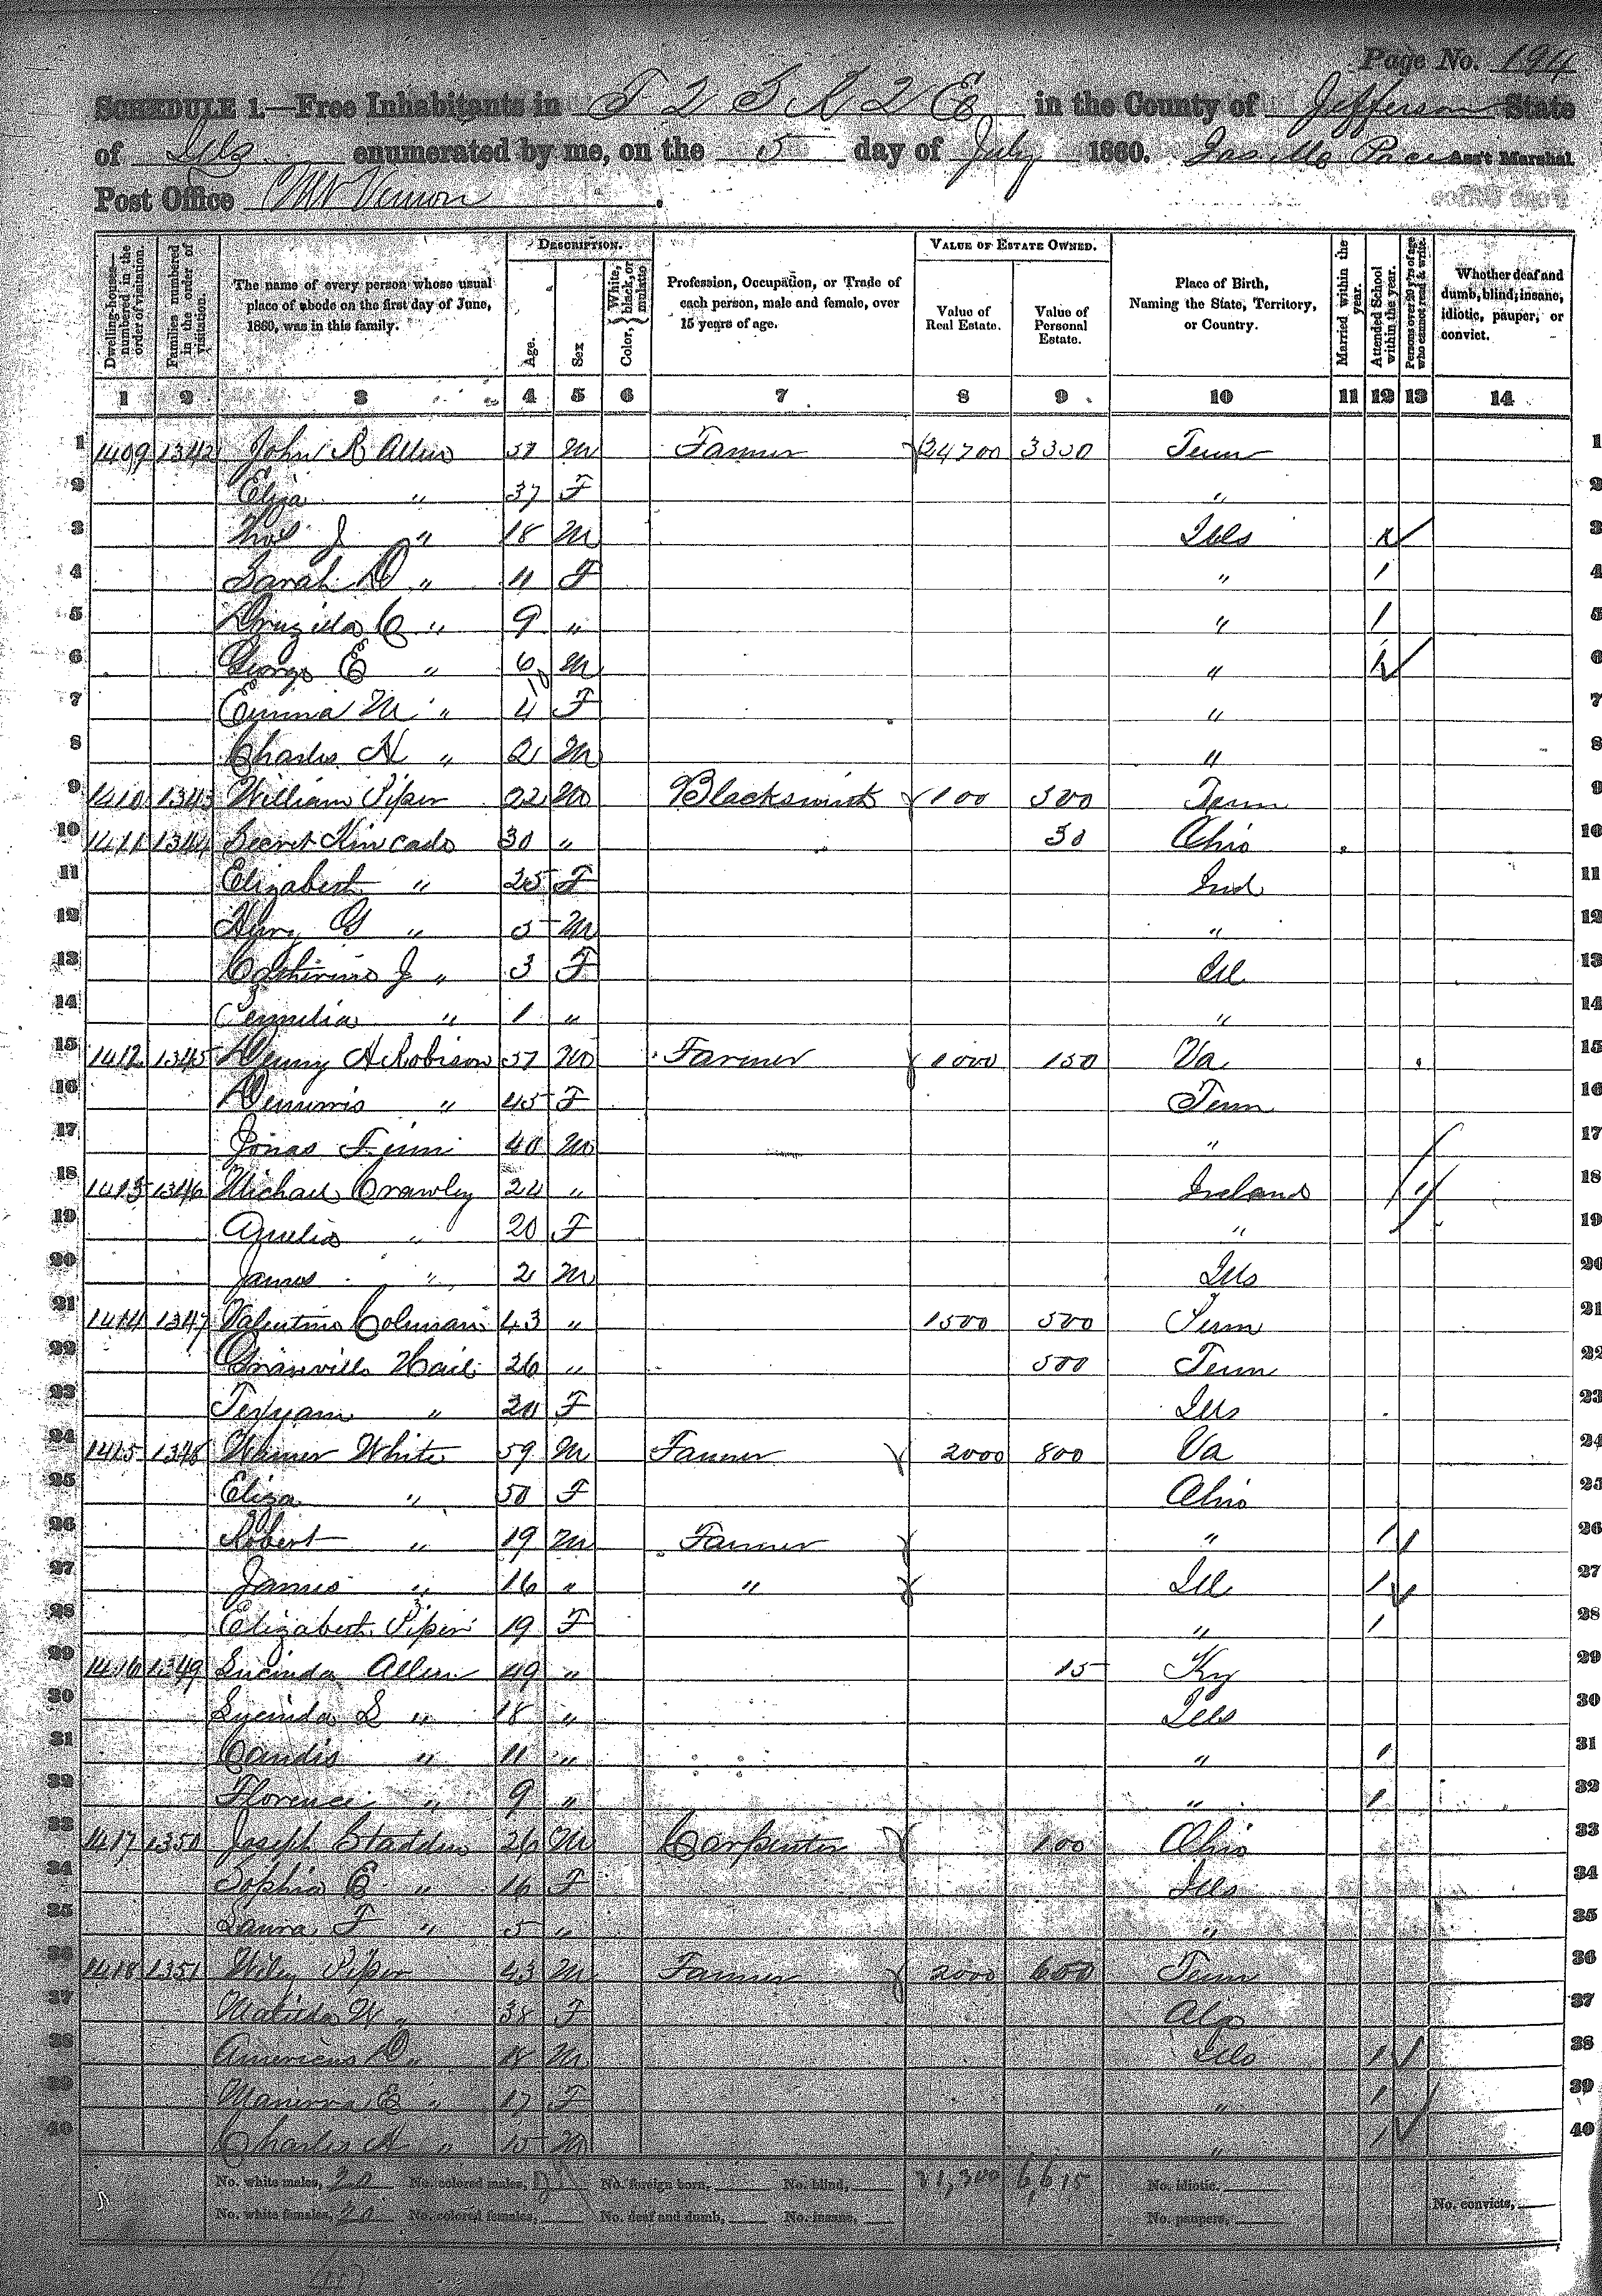 Page No. 194
SCHEDULE 1.—Free Inhabitants in T 2 S R 2 E in the County of Jefferson State
of Ills enumerated by me, on the 5 day of July 1860. Ass't Marshal
Post Office Mt Vernon.
Dwelling-houses—numbered in the order of visitation.
Families numbered in the order of visitation.
The name of every person whose usual place of abode on the first day of June, 1860, was in this family.
DESCRIPTION.
Age.
Sex
Color. { White, black, or mulatto
Profession, Occupation, or Trade of each person, male and female, over 15 years of age.
VALUE OF ESTATE OWNED.
Value of Real Estate.
Value of Personal Estate.
Place of Birth, Naming the State, Territory, or Country.
Married within the year.
Attended School within the year.
Persons over 20 y'rs of age who cannot read & write.
Whether deaf and dumb, blind, insane, idiotic, pauper, or convict.
1 2 3 4 5 6 7 8 9 10 11 12 13 14
1 1409 1342 John R Allen M Farmer Tenn 1
2 Eliza " 37 F " 2
3 J " 18 M Ills 3
4 Sarah D " 11 F " 1 4
5 Druzilla C " 9 " " 1 5
6 George E " 6 M " 1 6
7 Emma M " 4 F " 7
8 Charles H " 2 M " 8
9 1410 1343 William Piper 22 M Blacksmith 100 300 Tenn 9
10 1411 1344 Kincade 30 " 30 Ohio 10
11 Elizabeth " 25 F Ind 11
12 Henry G " 5 M " 12
13 Catherine J " 3 F Ill 13
14 " 1 " " 14
15 1412 1345 H Robison M Farmer 1000 150 Va 15
16 " 45 F Tenn 16
17 Jonas 40 M " 17
18 1413 1346 Michael Crawley 24 " Ireland 18
19 " 20 F " 19
20 James " 2 M Ills 20
21 1414 1347 Valentine Coleman 43 " 1500 500 Tenn 21
22 Granville Hail 26 " 500 Tenn 22
23 " 20 F Ills 23
24 1415 1348 Warner White 59 M Farmer 2000 800 Va 24
25 Eliza " 50 F Ohio 25
26 Robert " 19 M Farmer " 1 26
27 James " 16 " " Ill 1 27
28 Elizabeth Piper 19 F " 1 28
29 1416 1349 Lucinda Allen 49 " 15 Ky 29
30 Lucinda S " 18 " Ills 30
31 Candis " 11 " " 1 31
32 Florence " 9 " " 1 32
33 1417 1350 Joseph Stadden 26 M Carpenter 100 Ohio 33
34 Sophia E " 16 F Ills 34
35 Laura F " 5 " " 35
36 1418 1351 Wiley Piper 43 M Farmer 2000 600 Tenn 36
37 Matilda W " 38 F 37
38 Americus D " 18 M Ills 1 38
39 Manerva E " 17 F " 1 39
40 Charles A " 15 M " 1 40
No. white males, 20 No. colored males, No. foreign born, No. blind, 6,615 No. idiotic.
No. white females, 20 No. colored females, No. deaf and dumb, No. insane, No. paupers, No. convicts,